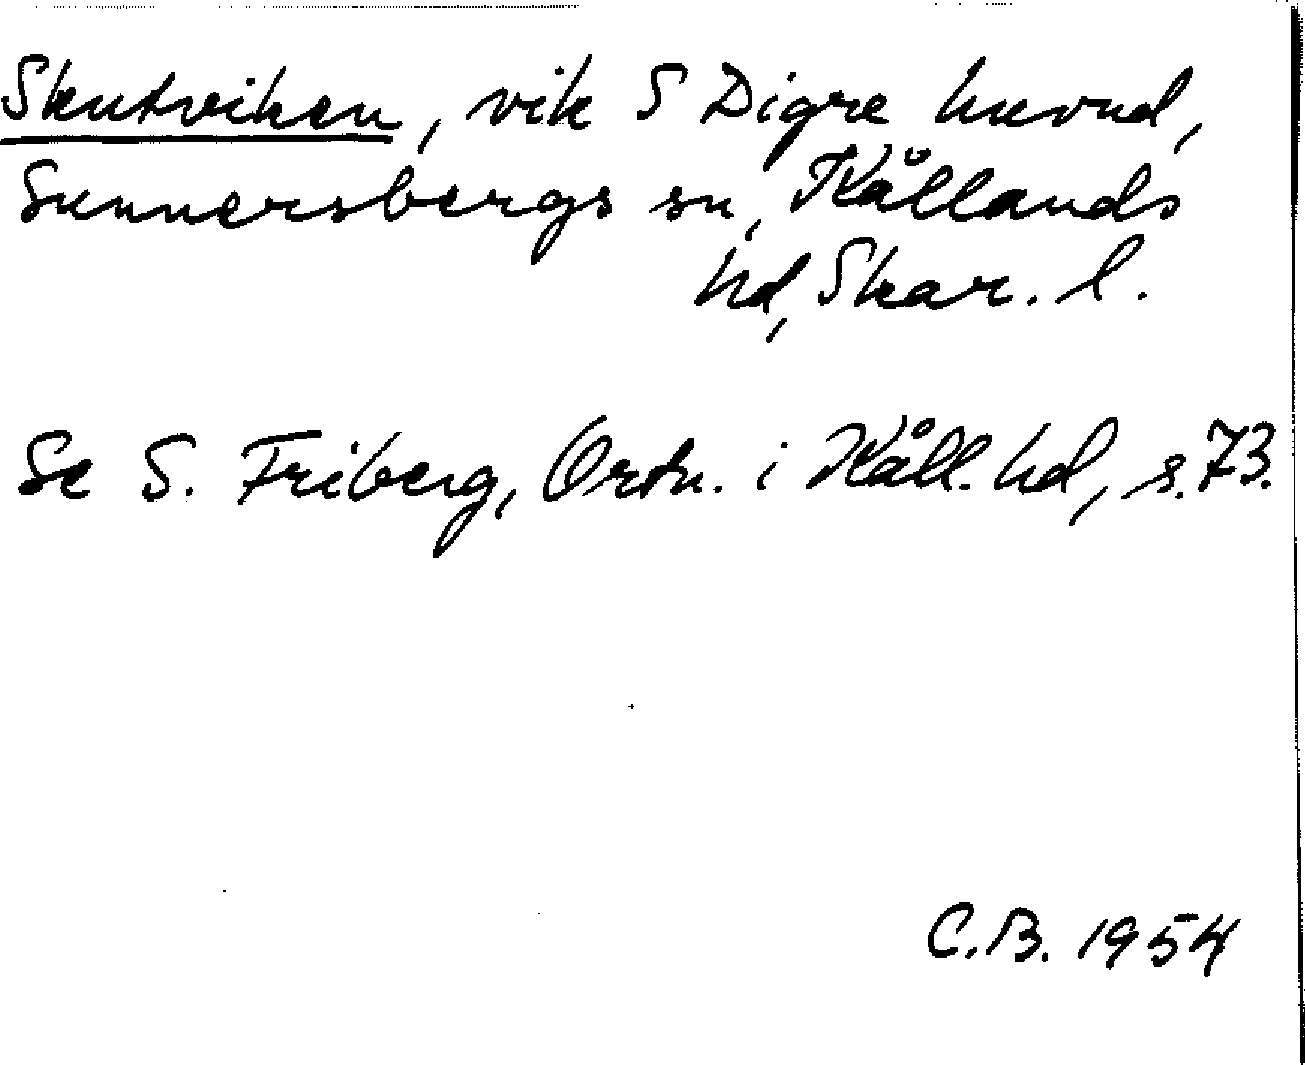 Skutviken, vik S Digre huvud,
Sunnersbergs sn, Kållands
hd, Skar. l.
Se S. Friberg, Ortn. i Kåll. hd, s. 73.
C.B. 1954